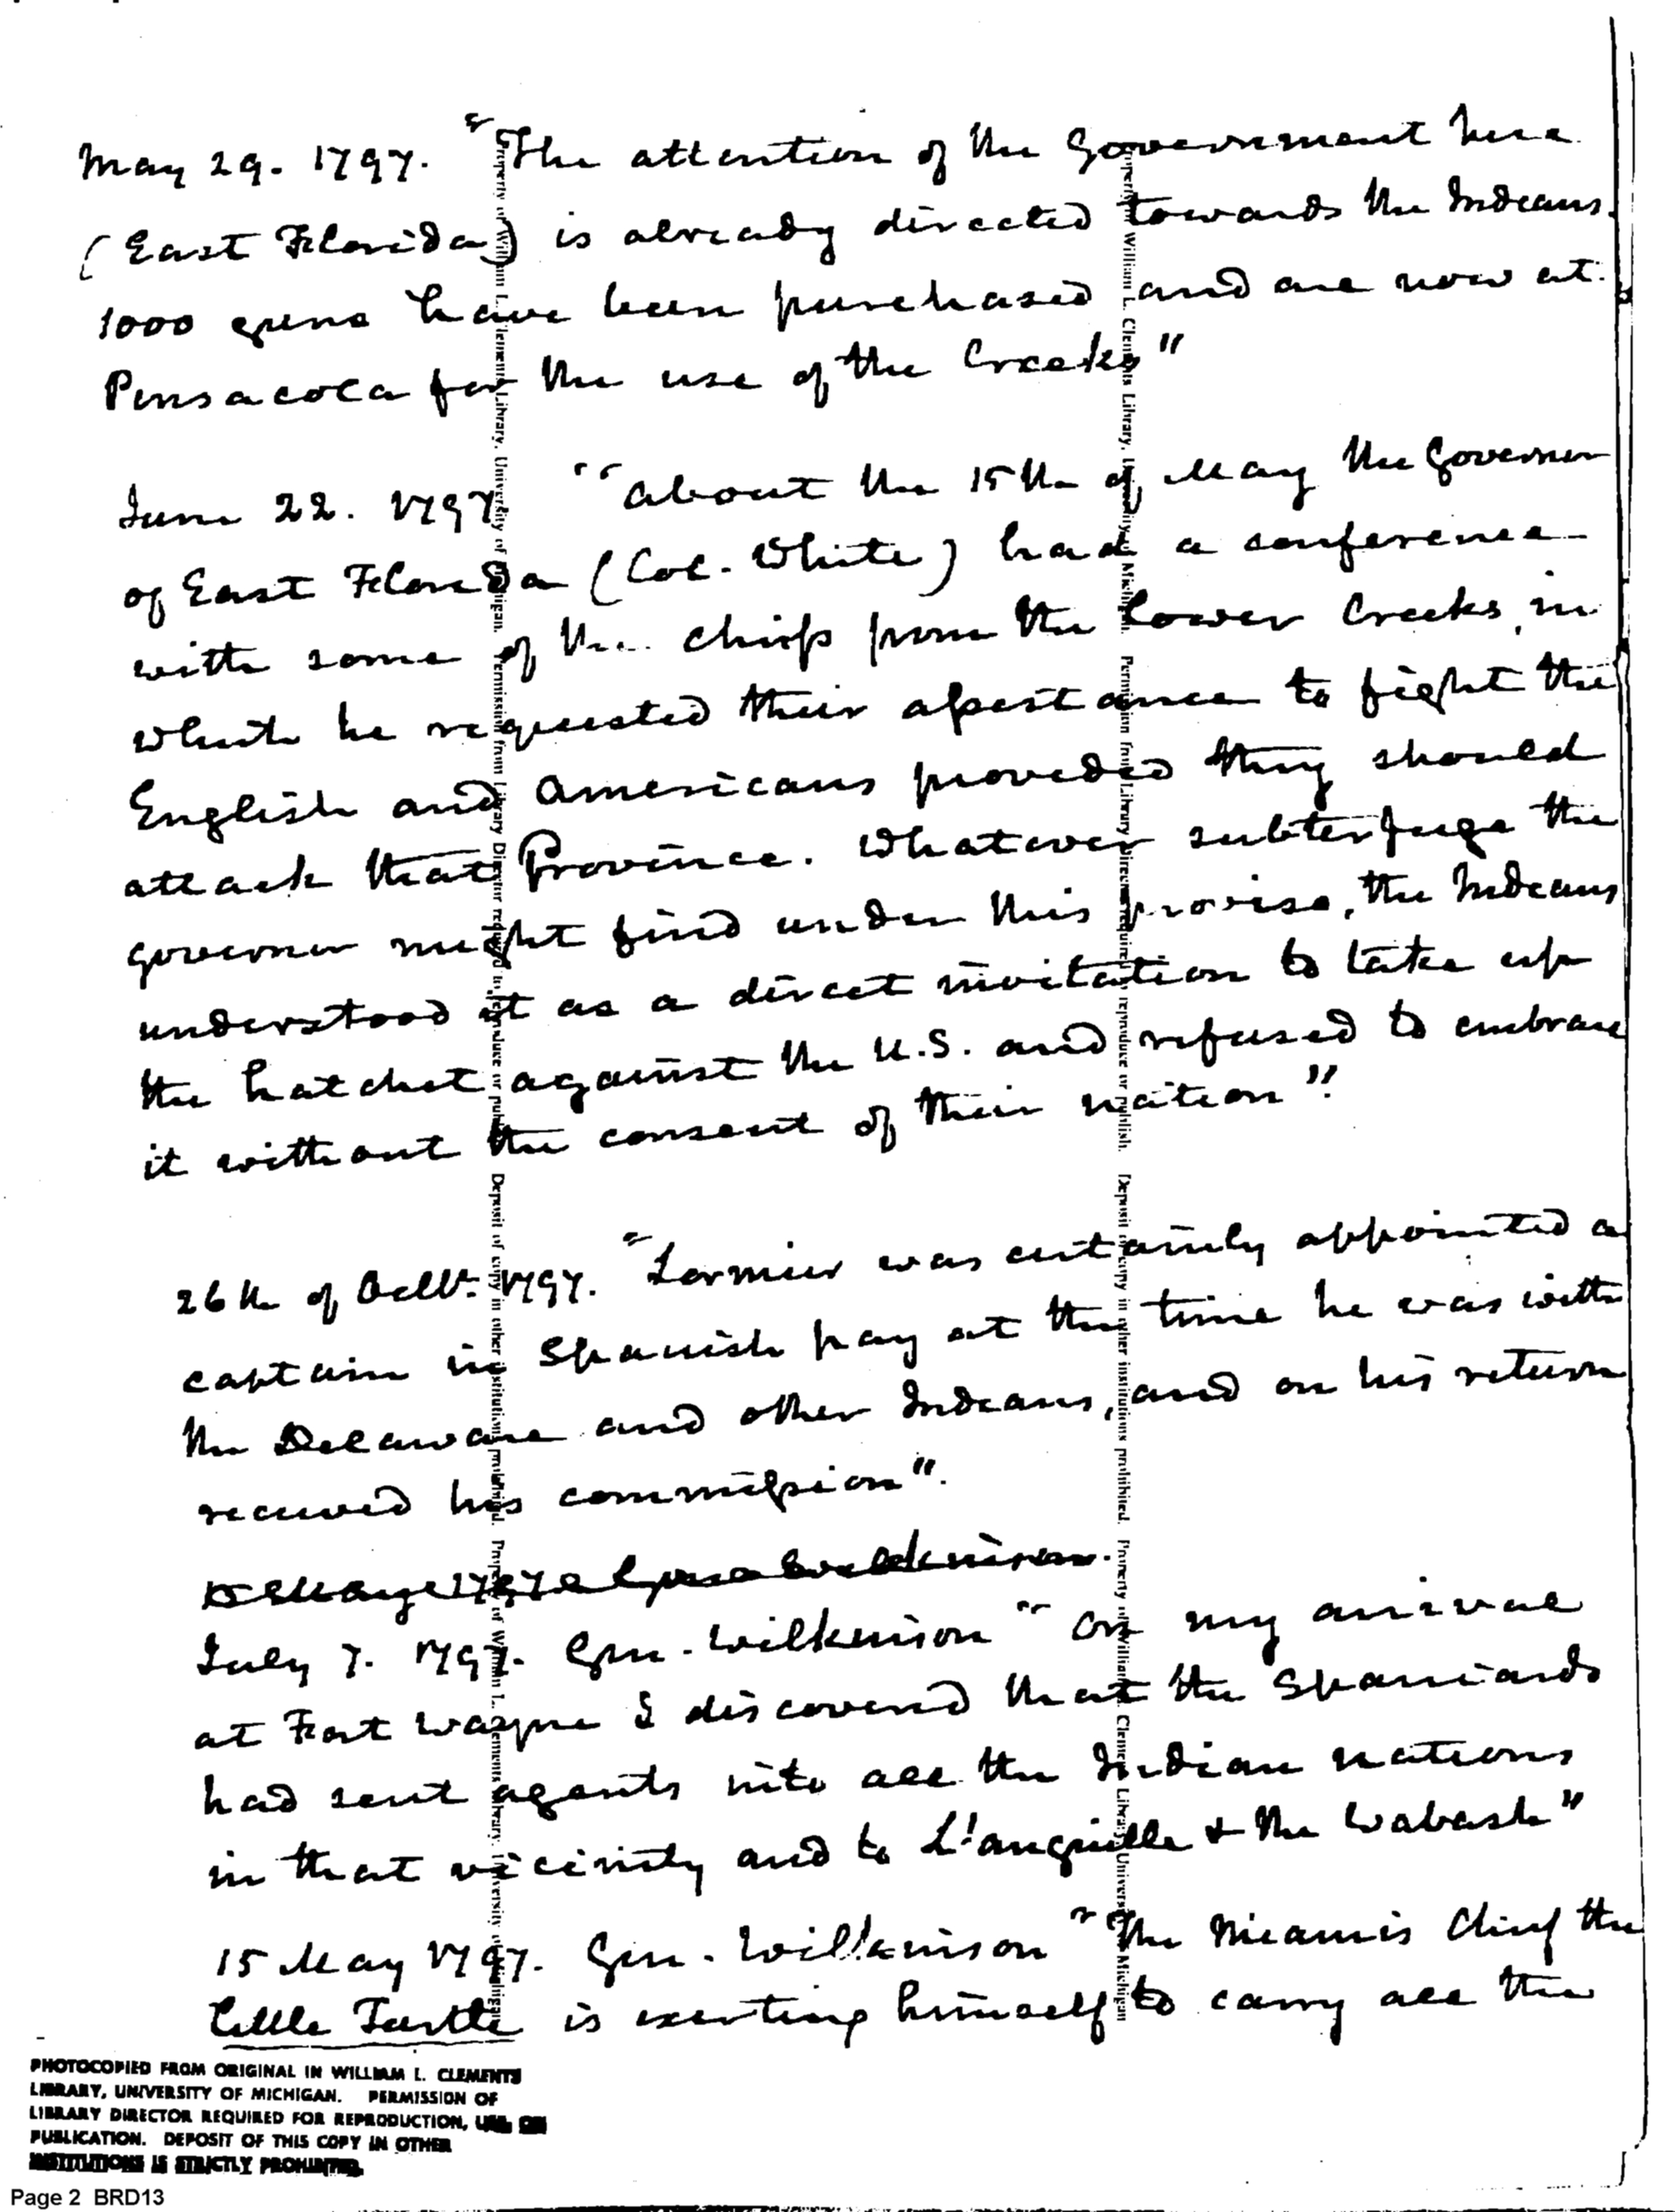 May 29. 1797. "The attention of the Government here
(East Florida) is already directed towards the Indians.
1000 guns have been purchased and are now at
Pensacola for the use of the Creeks"
June 22. 1797 "About the 15th of May the Governor
of East Florida (Col. White) had a conference
with some of the chiefs from the Lower Creeks, in
which he requested their assistance to fight the
English and Americans provided they should
attack that Province. Whatever subterfuge the
governor might find under this proviso, the Indians
understood it as a direct invitation to take up
the hatchet against the U.S. and refused to embrace
it without the consent of their nation".
26th of Octbr. 1797. "Lormier was certainly appointed a
captain in Spanish pay at the time he was with
the Delaware and other Indians, and on his return
received his commission".
July 7. 1797. Gen. Wilkinson "On my arrival
at Fort Wayne I discovered that the Spaniards
had sent agents into all the Indian nations
in that vicinity and to L'anguille & the Wabash"
15 May 1797. Gen. Wilkinson "The Miamis Chief the
Little Turtle is exerting himself to carry all the
PHOTOCOPIED FROM ORIGINAL IN WILLIAM L. CLEMENTS
LIBRARY, UNIVERSITY OF MICHIGAN. PERMISSION OF
LIBRARY DIRECTOR REQUIRED FOR REPRODUCTION, USE OR
PUBLICATION. DEPOSIT OF THIS COPY IN OTHER
INSTITUTIONS IS STRICTLY PROHIBITED.
Page 2 BRD13
Property of William L. Clements Library, University of Michigan. Permission from Library Director required to reproduce or publish. Deposit of copy in other institutions prohibited. Property of William L. Clements Library, University of Michigan
Property of William L. Clements Library, University of Michigan. Permission from Library Director required to reproduce or publish. Deposit of copy in other institutions prohibited. Property of William L. Clements Library, University of Michigan